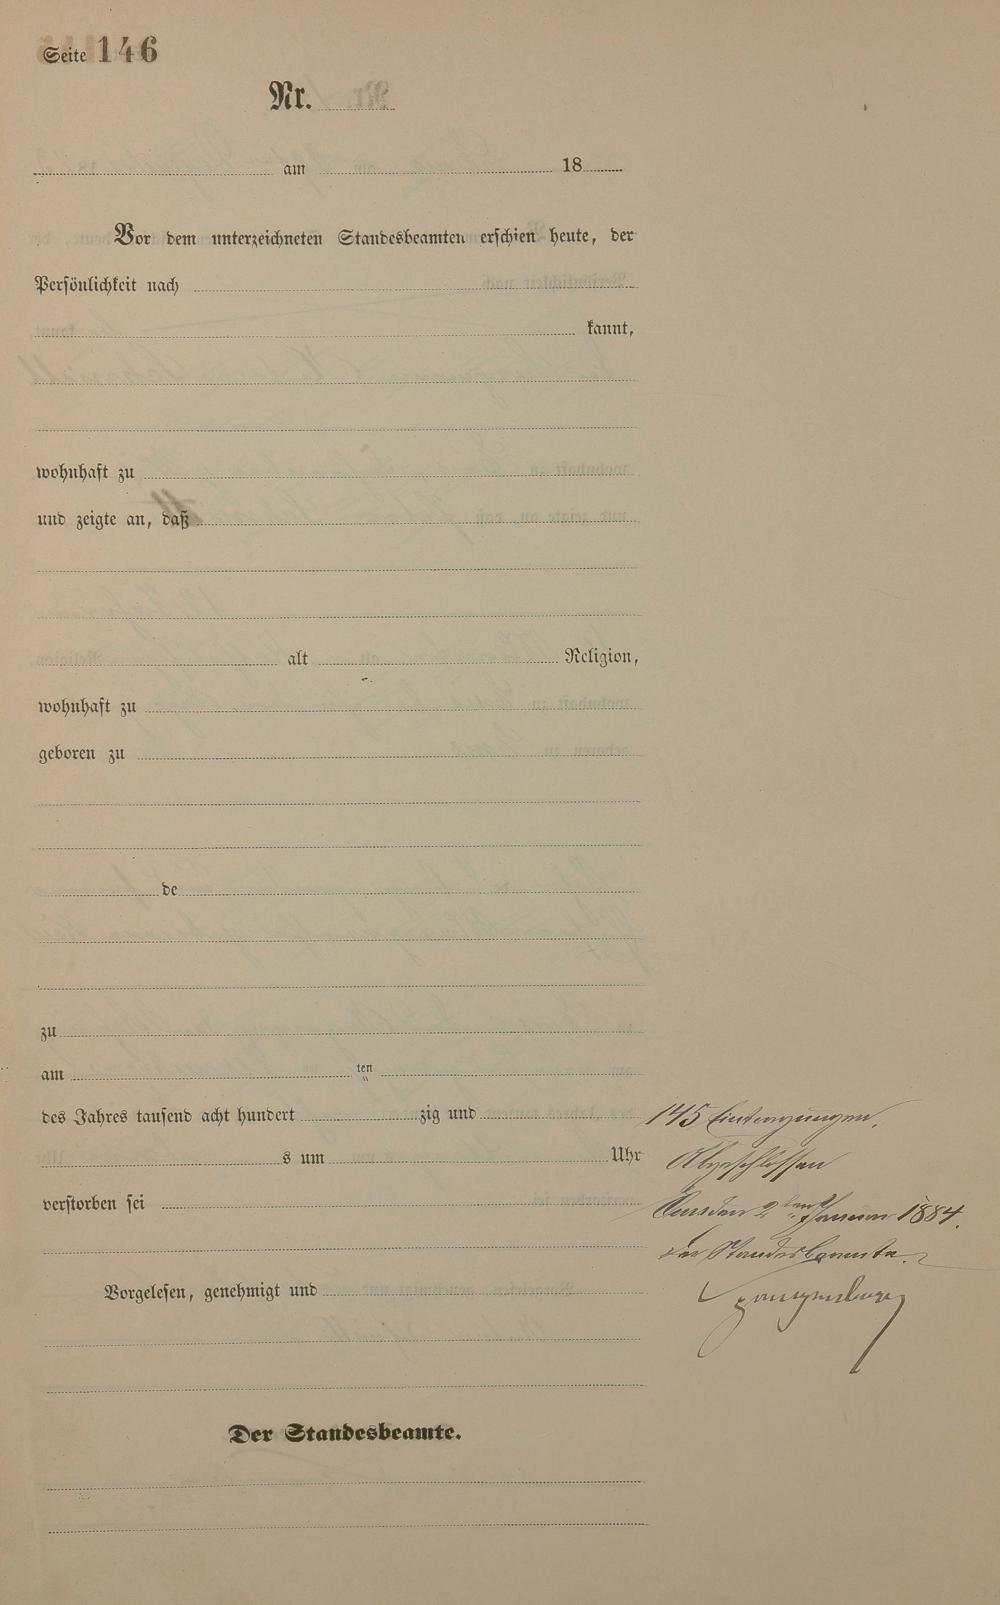 Seite 146
Nr.
am 18
Vor dem unterzeichneten Standesbeamten erschien heute, der
Persönlichkeit nach
kannt,
wohnhaft zu
und zeigte an, daß
alt Religion,
wohnhaft zu
geboren zu
de
zu
am ten
des Jahres tausend acht hundert zig und
s um Uhr
verstorben sei
Vorgelesen, genehmigt und
Der Standesbeamte.
145 Eintragungen.
Abgeschlossen
2ten Januar 1884.
Der Standesbeamte.